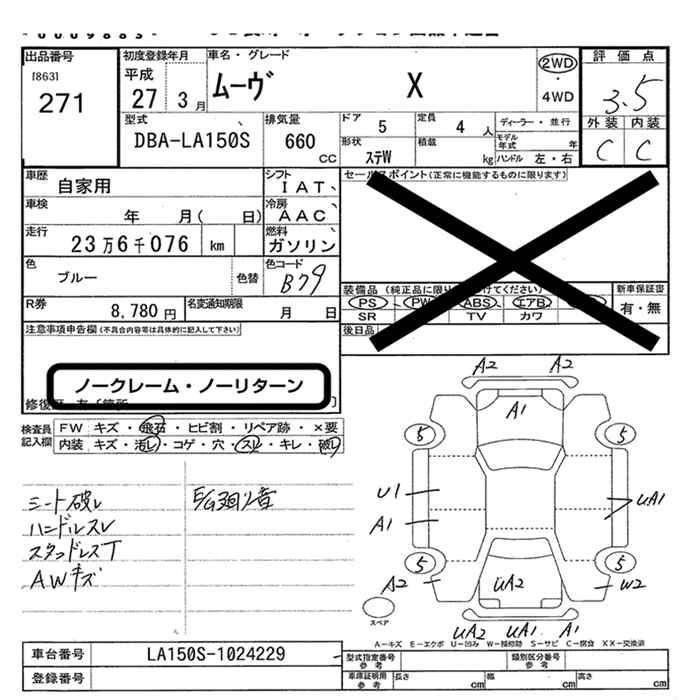 出品番号 初度登録年月 車名・グレード 評価点
[863] 平成 ムーヴ X 2WD
271 27 3月 4WD 3.5
外装 内装
型式 排気量 ドア 定員 ディーラー・並行 C C
DBA-LA150S 660 CC 5 4人 モデル年式 年
形状 ステW 積載 kg ハンドル 左・右
車歴 シフト セールスポイント(正常に機能するものに限ります)
自家用 IAT
車検 年 月( 日) 冷房 AAC
走行 燃料
23万6千076 km ガソリン
色 色替 色コード 装備品 新車保証書
ブルー B79 PS PW ABS エアB 有・無
R券 8,780円 名変通知期限 月 日 SR TV カワ
注意事項申告欄(不具合内容等は具体的に記入して下さい) 後日品
ノークレーム・ノーリターン
検査員記入欄 FW キズ・飛石・ヒビ割・リペア跡・×要
内装 キズ・汚レ・コゲ・穴・スレ・キレ・破レ
A2 A2
A1
5 5
シート破レ E/G廻り音 U1 UA1
ハンドルスレ A1
スタッドレスT
AWキズ 5 5
A2 UA2 W2
スペア
UA2 UA1 A1
A-キズ E-エクボ U-凹み W-板修跡 S-サビ C-腐食 XX-交換済
車台番号 LA150S-1024229 型式指定番号 参考 類別区分番号 参考
登録番号 車庫証明用 参考 長さ cm 幅 cm 高さ cm